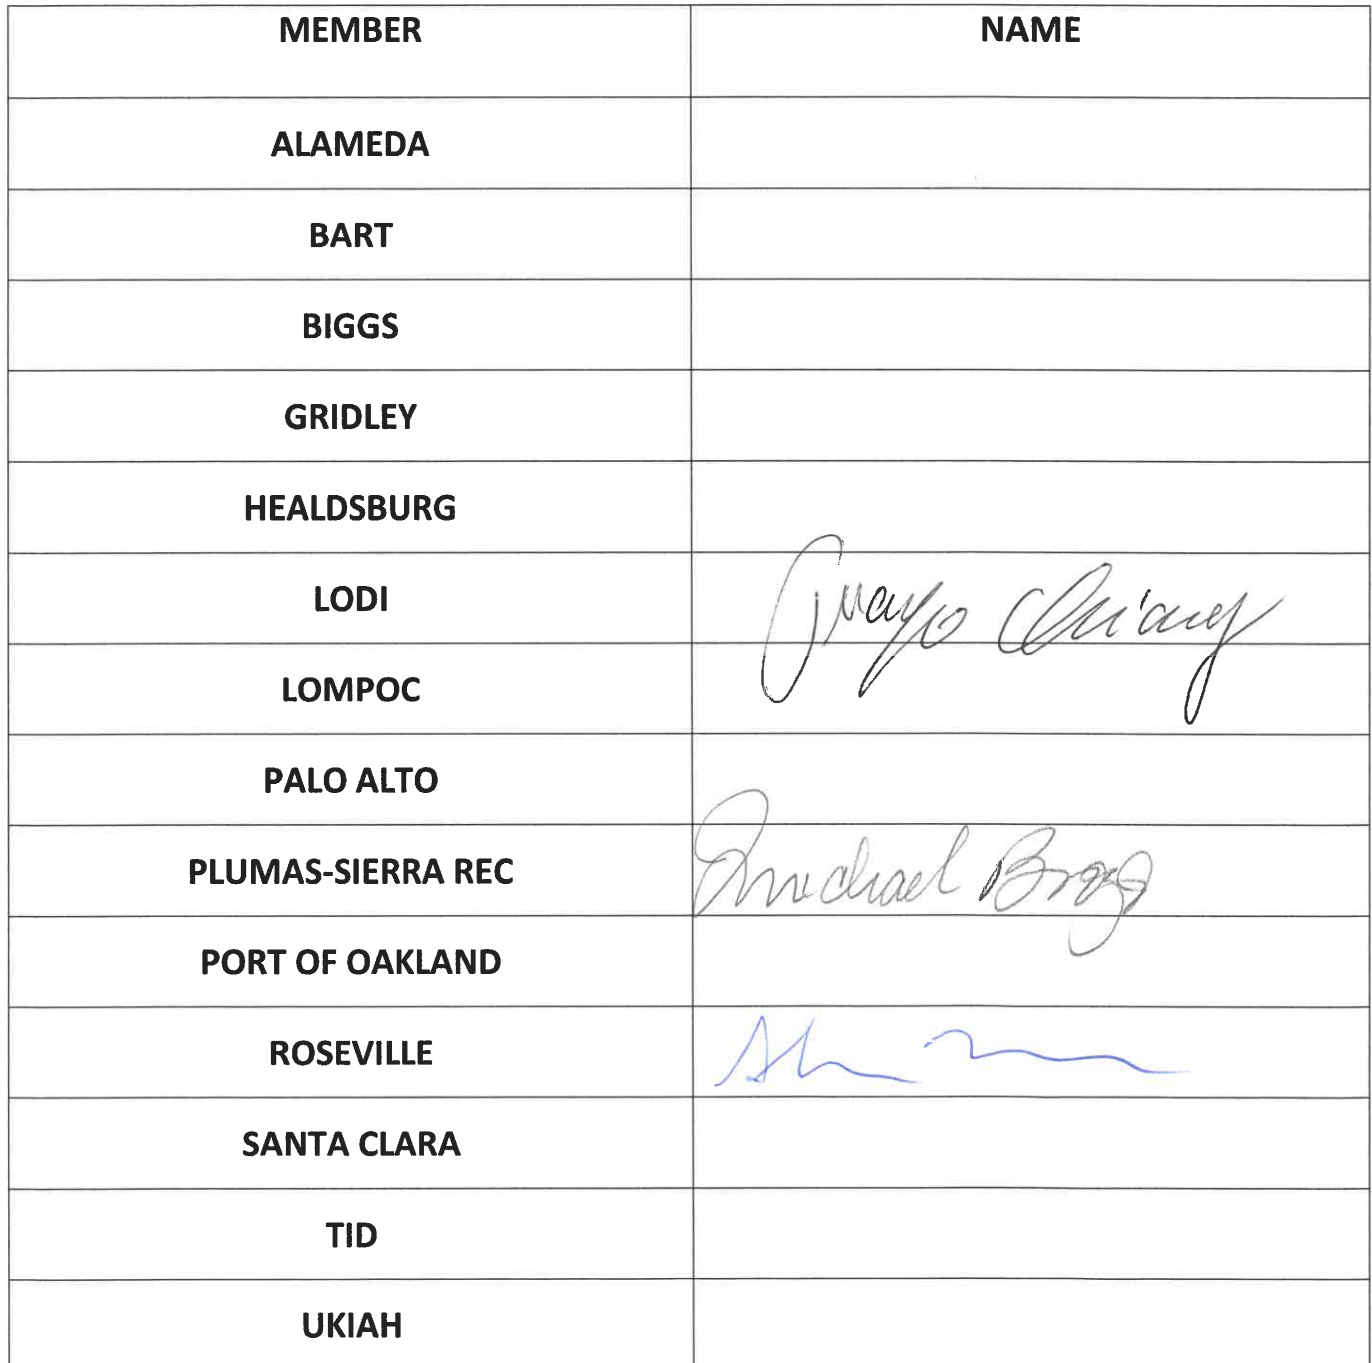 MEMBER NAME
ALAMEDA
BART
BIGGS
GRIDLEY
HEALDSBURG
LODI Chiang
LOMPOC
PALO ALTO
PLUMAS-SIERRA REC Michael
PORT OF OAKLAND
ROSEVILLE
SANTA CLARA
TID
UKIAH